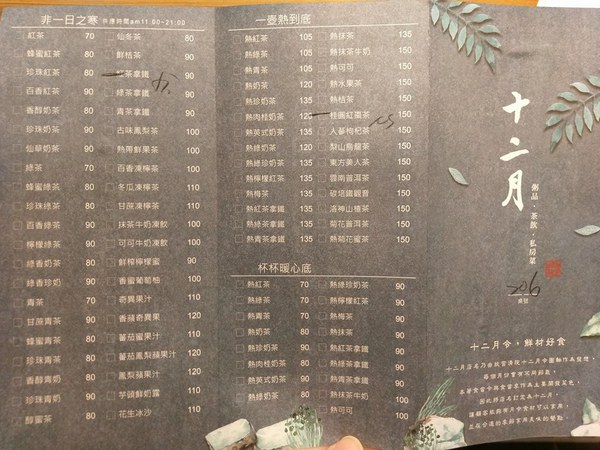 非一日之寒 供應時間am11:00~21:00
紅茶 70
蜂蜜紅茶 80
珍珠紅茶 80
百香紅茶 90
香醇奶茶 80
珍珠奶茶 90
仙草奶茶 90
綠茶 70
蜂蜜綠茶 80
珍珠綠茶 80
百香綠茶 90
檸檬綠茶 90
綠香奶茶 80
綠香珍奶 90
青茶 70
甘蔗青茶 90
蜂蜜青茶 80
珍珠青茶 80
青香醇奶 80
珍珠青奶 90
醇蜜茶 80
仙冬茶 80
鮮桔茶 90
紅茶拿鐵 90
綠茶拿鐵 90
青茶拿鐵 90
古味鳳梨茶 100
熱帶鮮果茶 100
百香凍檸茶 100
冬瓜凍檸茶 110
甘蔗凍檸茶 110
抹茶牛奶凍飲 100
可可牛奶凍飲 100
鮮榨檸檬蜜 90
香蜜葡萄柚 100
奇異果汁 110
香蘋奇異果 120
蕃茄蜜果汁 110
蕃茄鳳梨蘋果汁 120
鳳梨蘋果汁 110
芋頭鮮奶露 110
花生冰沙 110
一壺熱到底
熱紅茶 105
熱綠茶 105
熱青茶 105
熱奶茶 120
熱珍奶茶 135
熱肉桂奶茶 120
熱英式奶茶 135
熱綠奶茶 120
熱綠珍奶茶 135
熱檸檬紅茶 135
熱梅茶 135
熱紅茶拿鐵 135
熱綠茶拿鐵 135
熱青茶拿鐵 135
熱抹茶 135
熱抹茶牛奶 150
熱可可 150
熱水果茶 150
熱桔茶 150
桂圓紅棗茶 150
人蔘枸杞茶 150
梨山烏龍茶 150
東方美人茶 150
雲南普洱茶 150
碳焙鐵觀音 150
洛神山楂茶 150
菊花普洱茶 150
熱菊花蜜茶 150
杯杯暖心底
熱紅茶 70
熱綠茶 70
熱青茶 70
熱奶茶 80
熱珍奶茶 90
熱肉桂奶茶 80
熱英式奶茶 90
熱綠奶茶 80
熱綠珍奶茶 90
熱檸檬紅茶 90
熱梅茶 90
熱抹茶 90
熱紅茶拿鐵 90
熱綠茶拿鐵 90
熱青茶拿鐵 90
熱抹茶牛奶 100
熱可可 100
十二月
粥品・茶飲・私房菜
206
桌號
十二月令・鮮材好食